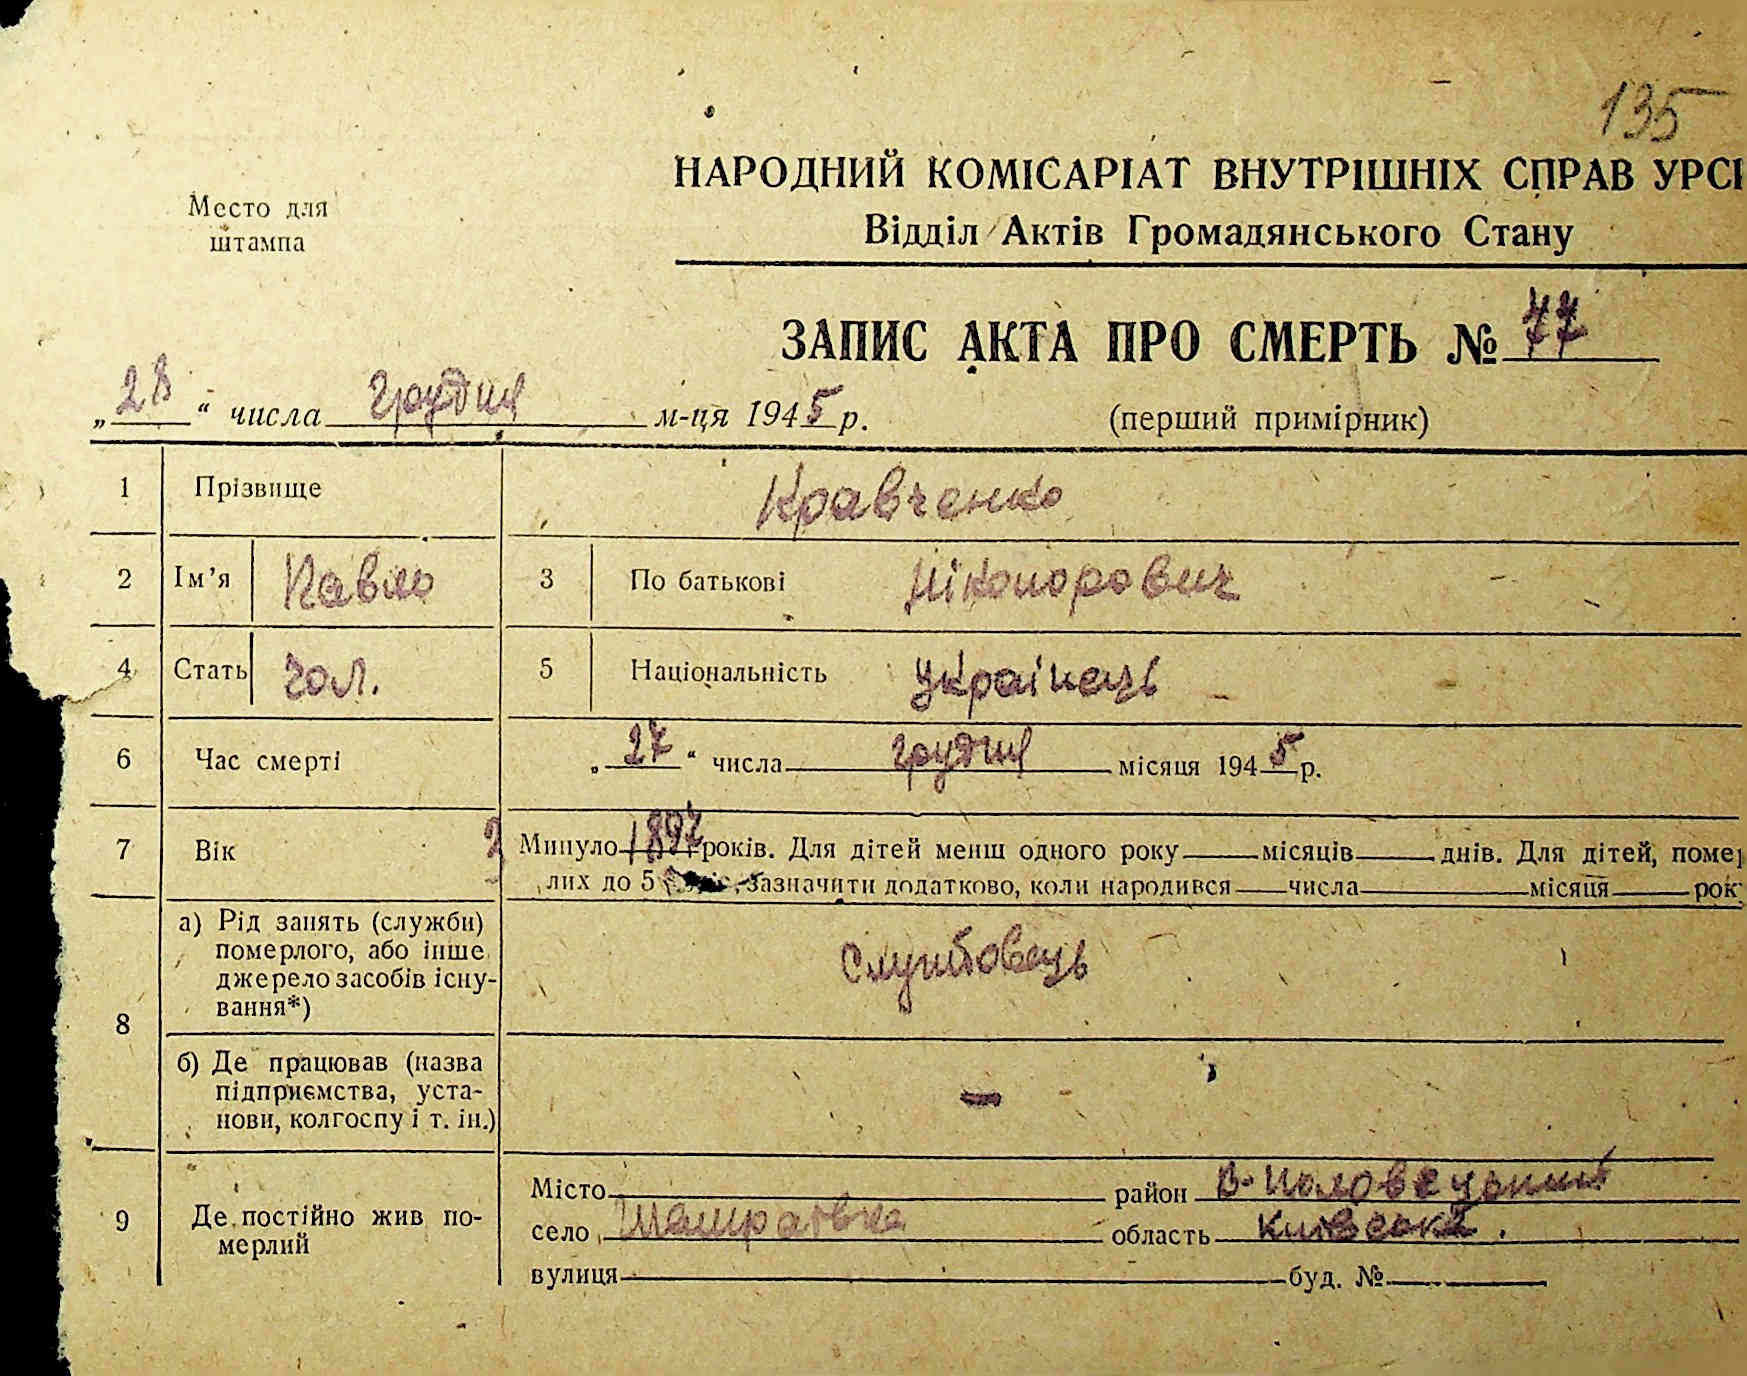 135
НАРОДНИЙ КОМІСАРІАТ ВНУТРІШНІХ СПРАВ УРСР
Место для
штампа
Відділ Актів Громадянського Стану
ЗАПИС АКТА ПРО СМЕРТЬ № 77
„28“ числа грудня м-ця 1945 р. (перший примірник)
1 Прізвище Кравченко
2 Ім'я Павло 3 По батькові Ніконорович
4 Стать чол. 5 Національність українець
6 Час смерті „27“ числа грудня місяця 1945 р.
7 Вік З Минуло 1897 років. Для дітей менш одного року місяців днів. Для дітей, помер
лих до 5 зазначити додатково, коли народився числа місяця рок
8 а) Рід занять (служби)
померлого, або інше
джерело засобів існу-
вання*) Службовець
б) Де працював (назва
підприємства, уста-
нови, колгоспу і т. ін.) —
9 Де постійно жив по-
мерлий
Місто район В-Половецький
село область Київська.
вулиця буд. №